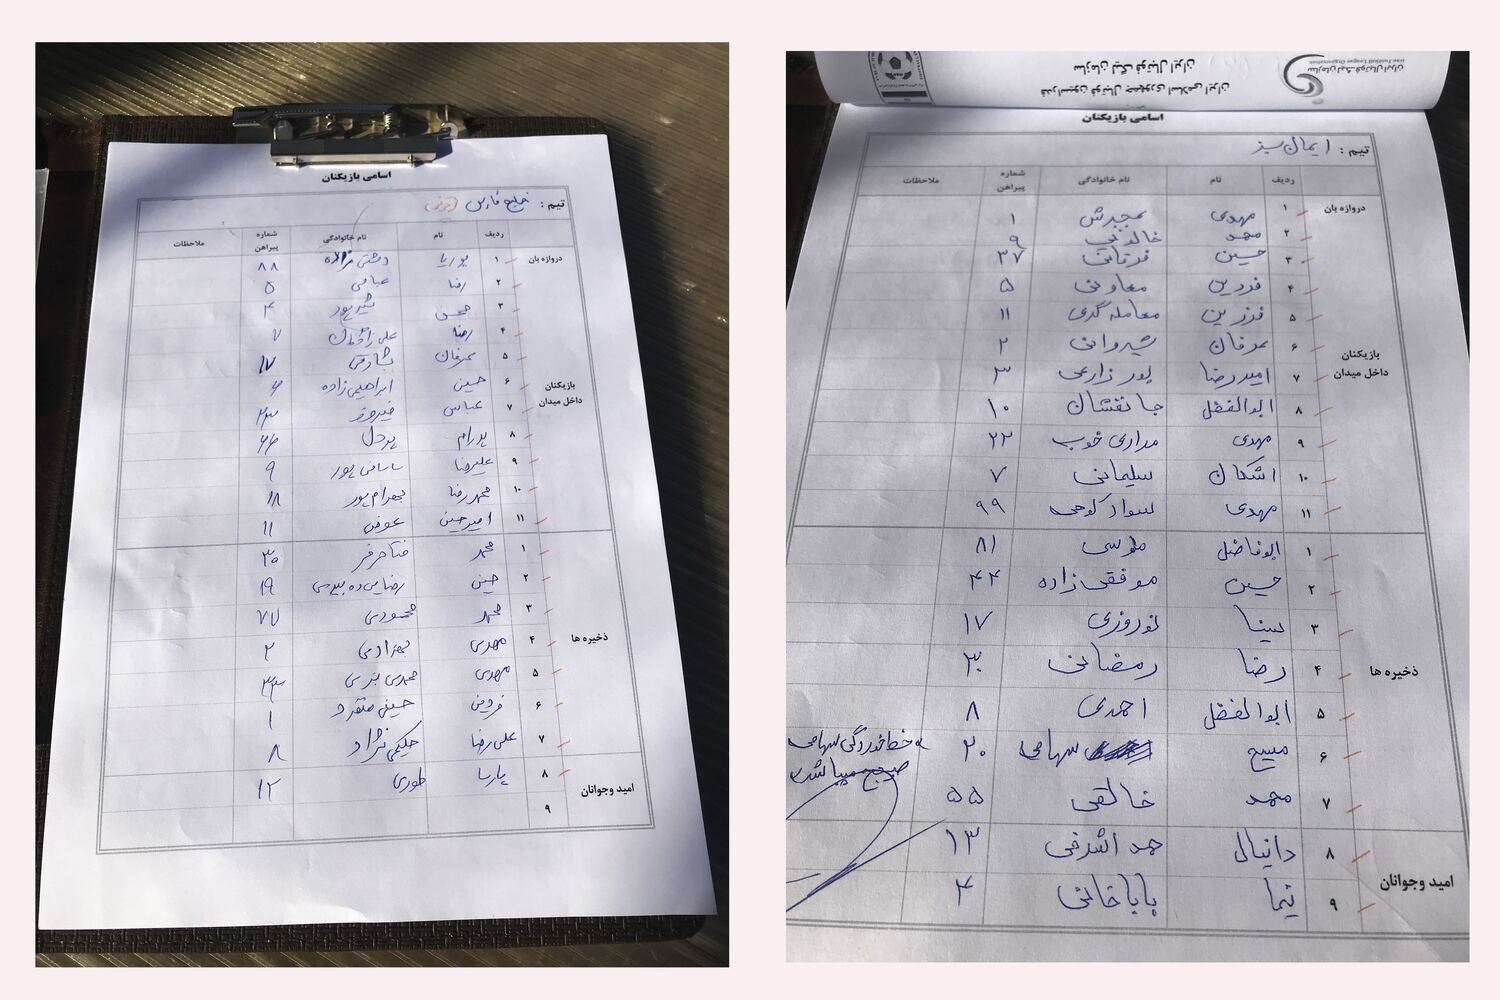 اسامی بازیکنان
تیم : خلیج فارس
ردیف نام نام خانوادگی شماره پیراهن ملاحظات
دروازه بان
۱ پوریا دشتی نژاد ۸۸
۲ رضا عباسی ۵
۳ محسن ۴
۴ رضا ۷
بازیکنان داخل میدان
۵ عرفان بشارتی ۱۷
۶ حسین ابراهیمی زاده ۶
۷ عباس
۸ پدرام پردل ۶۶
۹ علیرضا ساسانی پور ۹
۱۰ محمدرضا بهرام پور ۱۸
۱۱ امیرحسین عوض ۱۱
ذخیره ها
۱ محمد ۳۰
۲ حسین رضایی ده بیدی ۱۹
۳ محمد محمودی ۷۷
۴ مهدی بهزادی ۲
۵ مهدی ۳۳
۶ فروتن حسینی منفرد ۱
۷ علی رضا حکیمی نژاد ۸
امید وجوانان
۸ پارسا طوری ۱۲
۹
فدراسیون فوتبال جمهوری اسلامی ایران
سازمان لیگ فوتبال ایران
سازمان لیگ فوتبال ایران
Iran Football League Organization
اسامی بازیکنان
تیم : ایمان سبز
ردیف نام نام خانوادگی شماره پیراهن ملاحظات
دروازه بان
۱ مهدی ۱
۲ محمد ۹
۳ حسین فرقانی ۳۷
۴ فردین معاونی ۵
۵ فرزین معامله گری ۱۱
بازیکنان داخل میدان
۶ عرفان شیروانی ۲
۷ امیررضا پور زارعی ۳
۸ ابوالفضل جانفشان ۱۰
۹ مهدی مداری خوب ۲۲
۱۰ اشکان سلیمانی ۷
۱۱ مهدی سوادکوهی ۹۹
ذخیره ها
۱ ابوفاضل طوسی ۸۱
۲ حسین موفقی زاده ۴۴
۳ سینا نوروزی ۱۷
۴ رضا رمضانی ۳۰
۵ ابوالفضل احمدی ۸
۶ مسیح سهامی ۲۰
* خط خوردگی سهامی
صحیح میباشد
۷ محمد خالقی ۵۵
امید وجوانان
۸ دانیال حمد اشرفی ۱۳
۹ نیما باباخانی ۴